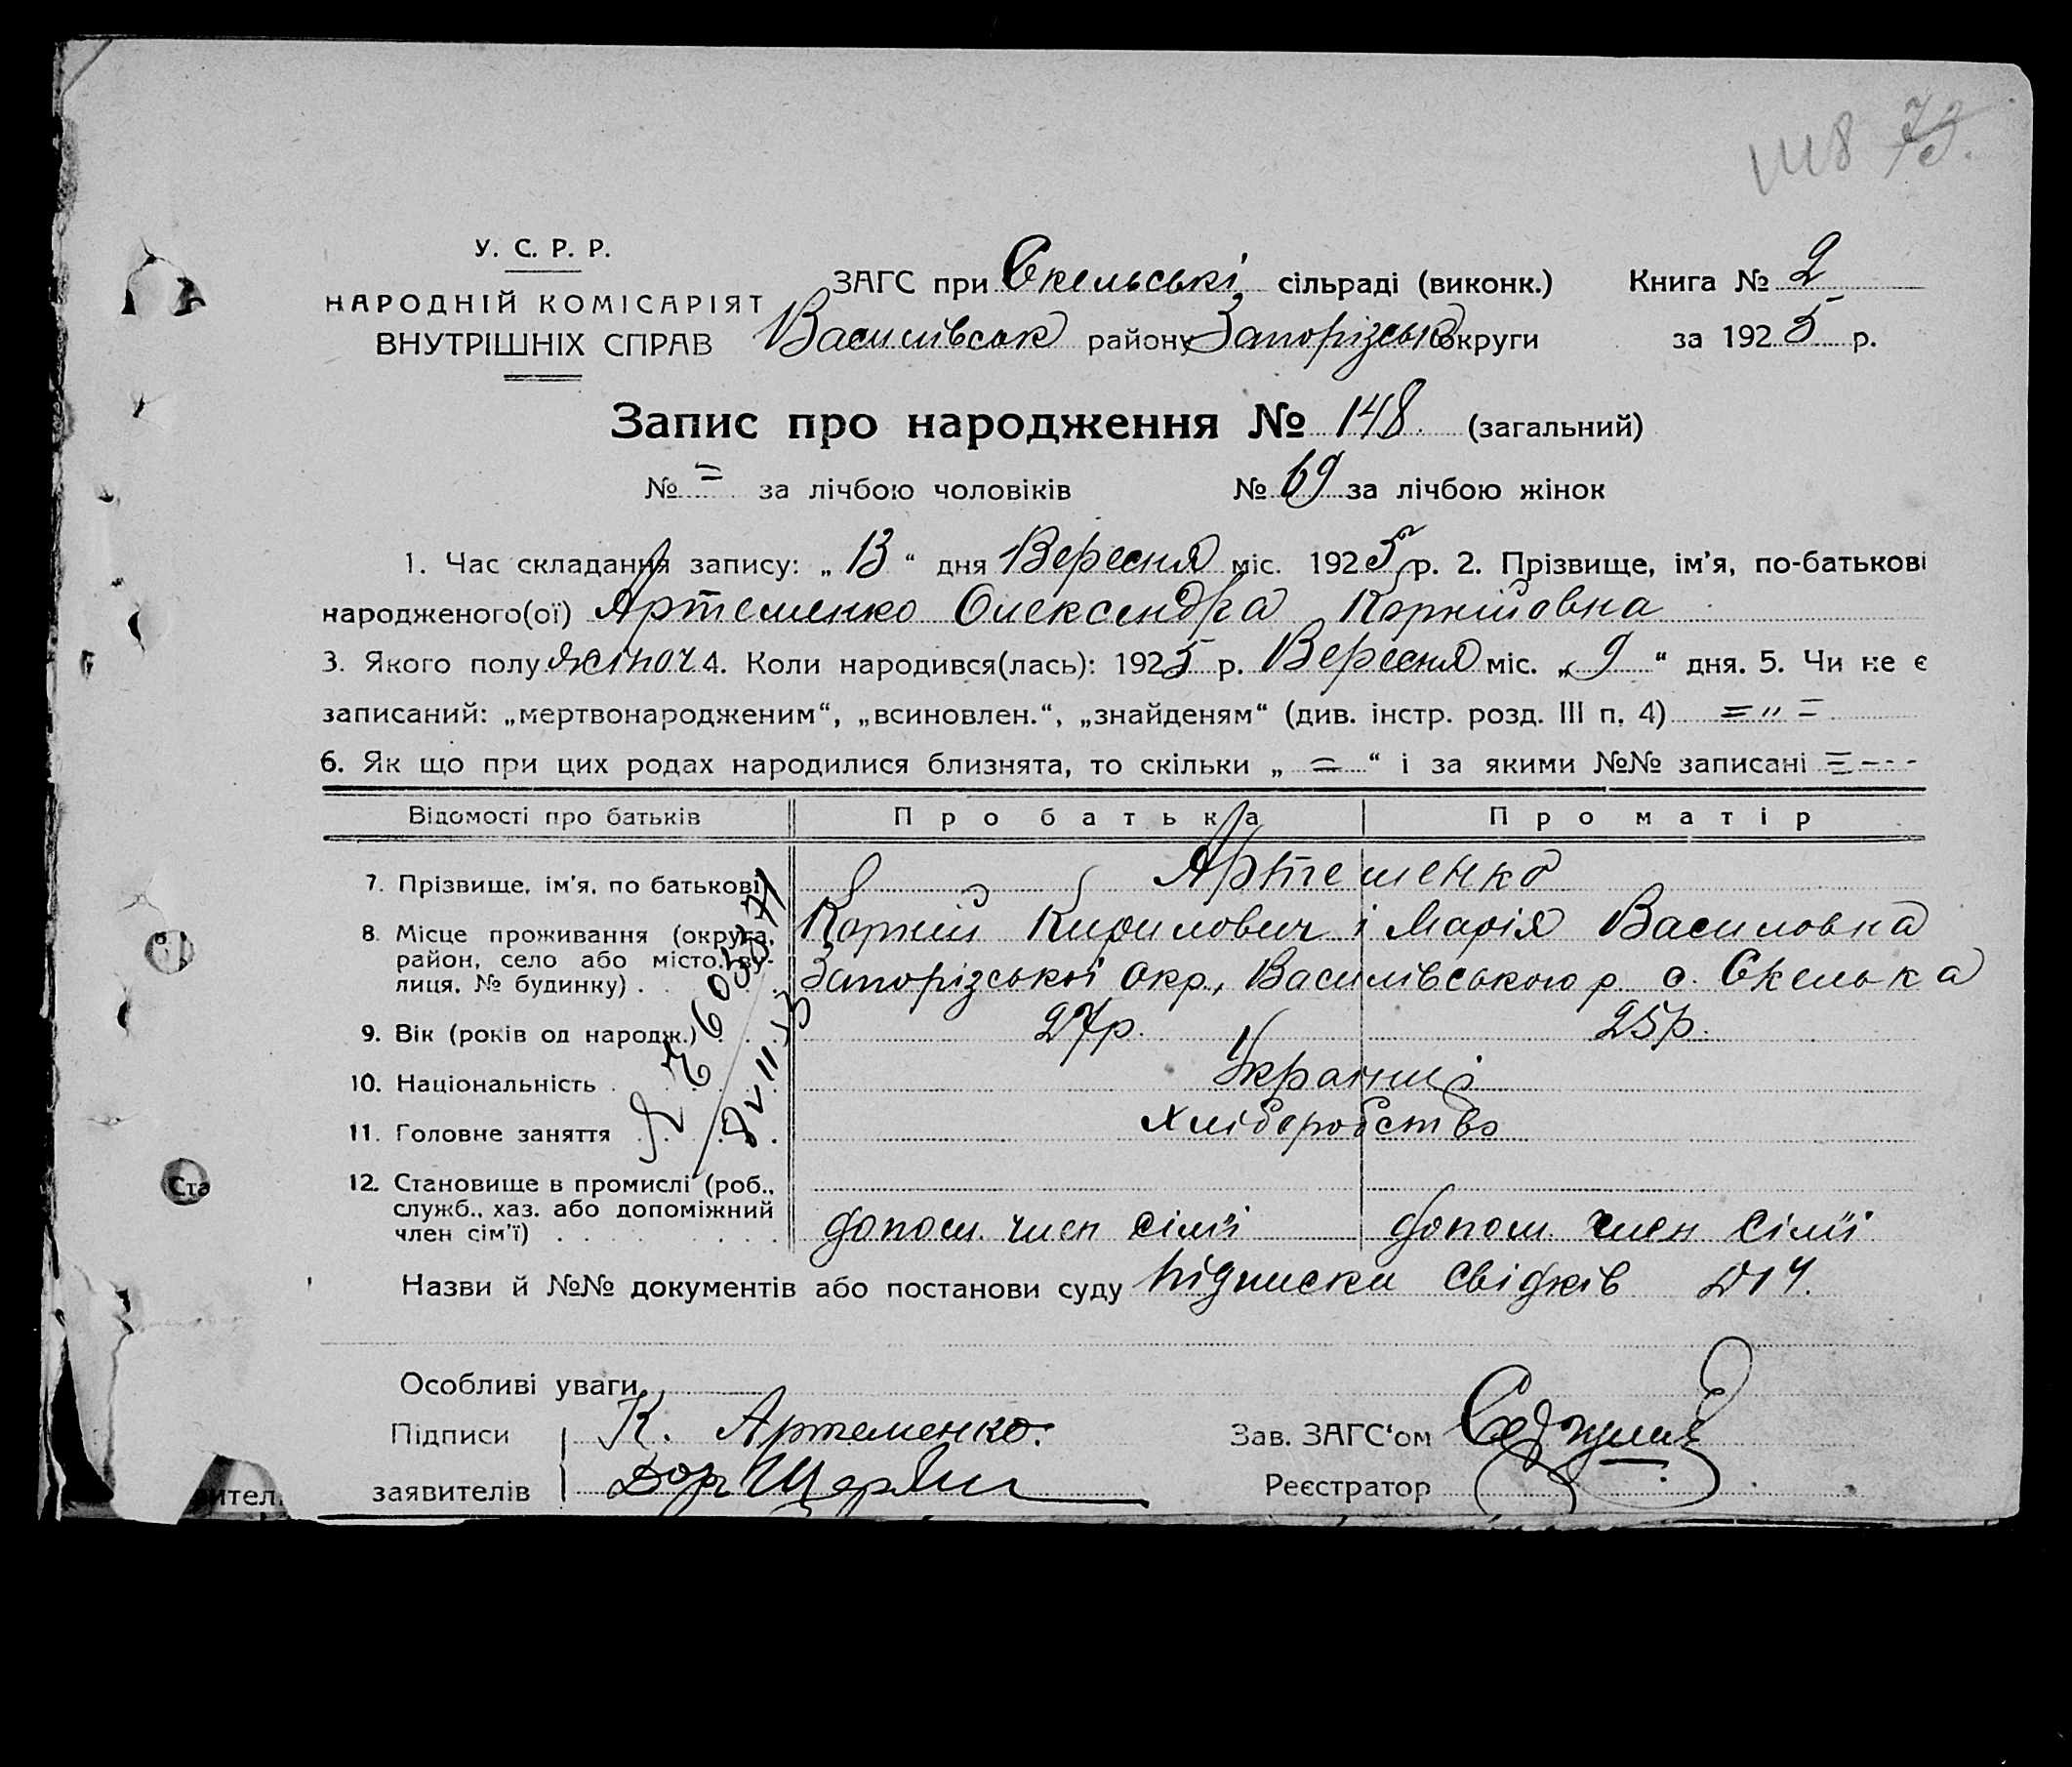 148 73.
У. С. Р. Р.
НАРОДНІЙ КОМІСАРІЯТ
ВНУТРІШНІХ СПРАВ
ЗАГС при Скельські сільраді (виконк.) Книга № 2
Василівськ району Запорізськ округи за 1925 р.
Запис про народження № 148. (загальний)
№ = за лічбою чоловіків № 69 за лічбою жінок
1. Час складання запису: „ 13 “ дня Вересня міс. 1925 р. 2. Прізвище, ім'я, по-батькові
народженого(ої) Артеменко Олександра Корніївна
3. Якого полу жіноч 4. Коли народився(лась): 1925 р. Вересня міс. „ 9 “ дня. 5. Чи не є
записаний: „мертвонародженим“, „всиновлен.“, „знайденям“ (див. інстр. розд. III п. 4) = „ =
6. Як що при цих родах народилися близнята, то скільки „ = “ і за якими №№ записані =---
Відомості про батьків Про батька Про матір
7. Прізвище, ім'я, по батькові Артеменко
Корній Кирилович і Марія Василовна
8. Місце проживання (округа, район, село або місто, вулиця, № будинку) Запорізської окр., Василівського р. с. Скелька
9. Вік (років од народж.) 27р. 25р.
10. Національність Українці
11. Головне заняття Хліборобство
12. Становище в промислі (роб., служб., хаз. або допоміжний член сім'ї) допом. член сімї допом. член сімї
Назви й №№ документів або постанови суду підписки свідків
Особливі уваги
Підписи К. Артеменко. Зав. ЗАГС'ом
заявителів Реєстратор
Ста
ител